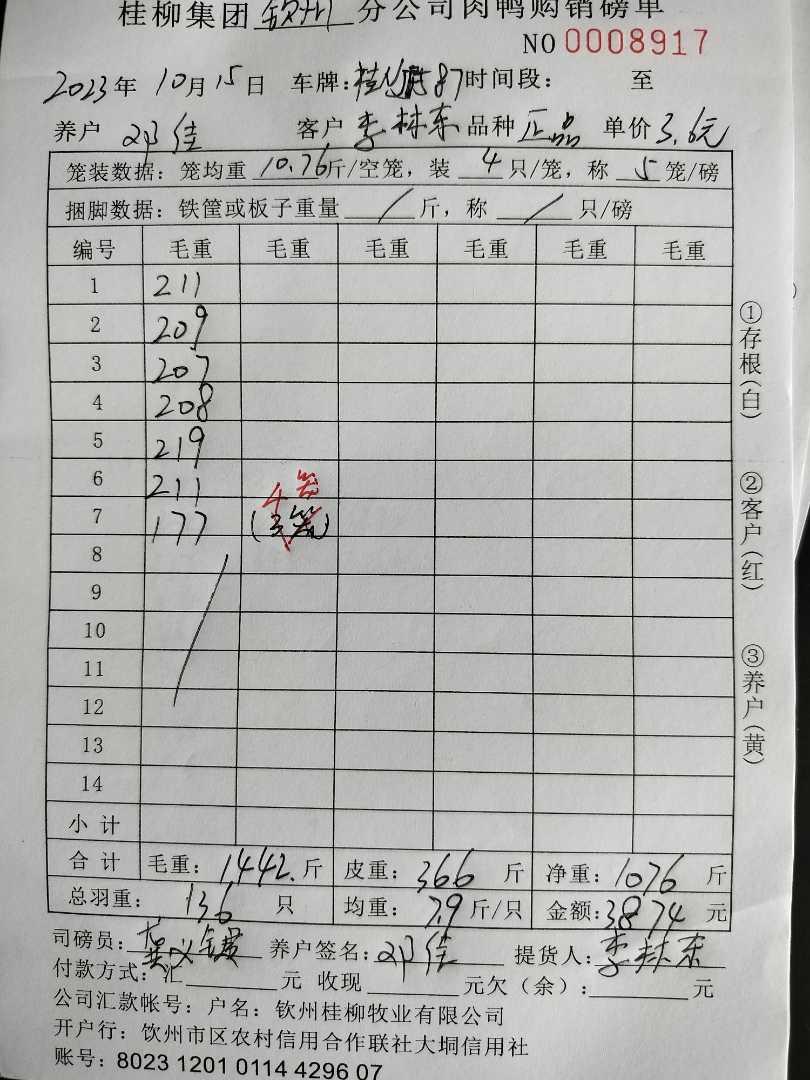 桂柳集团 钦州 分公司肉鸭购销磅单
NO 0008917
2023年 10月 15日 车牌: 桂 87 时间段: 至
养户 邓佳 客户 李林东 品种 正品 单价 3.6元
笼装数据: 笼均重 10.76 斤/空笼, 装 4 只/笼, 称 5 笼/磅
捆脚数据: 铁筐或板子重量 / 斤, 称 / 只/磅
编号 毛重 毛重 毛重 毛重 毛重 毛重
1 211
2 209
3 207
4 208
5 219
6 211 4笼
7 177 (3笼)
8
9
10
11
12
13
14
小计
合计 毛重: 1442. 斤 皮重: 366 斤 净重: 1076 斤
总羽重: 136 只 均重: 7.9 斤/只 金额: 3874 元
司磅员: 养户签名: 邓佳 提货人: 李林东
付款方式: 汇 元 收现 元欠(余): 元
公司汇款帐号: 户名: 钦州桂柳牧业有限公司
开户行: 饮州市区农村信用合作联社大垌信用社
账号: 8023 1201 0114 4296 07
①存根(白)
②客户(红)
③养户(黄)